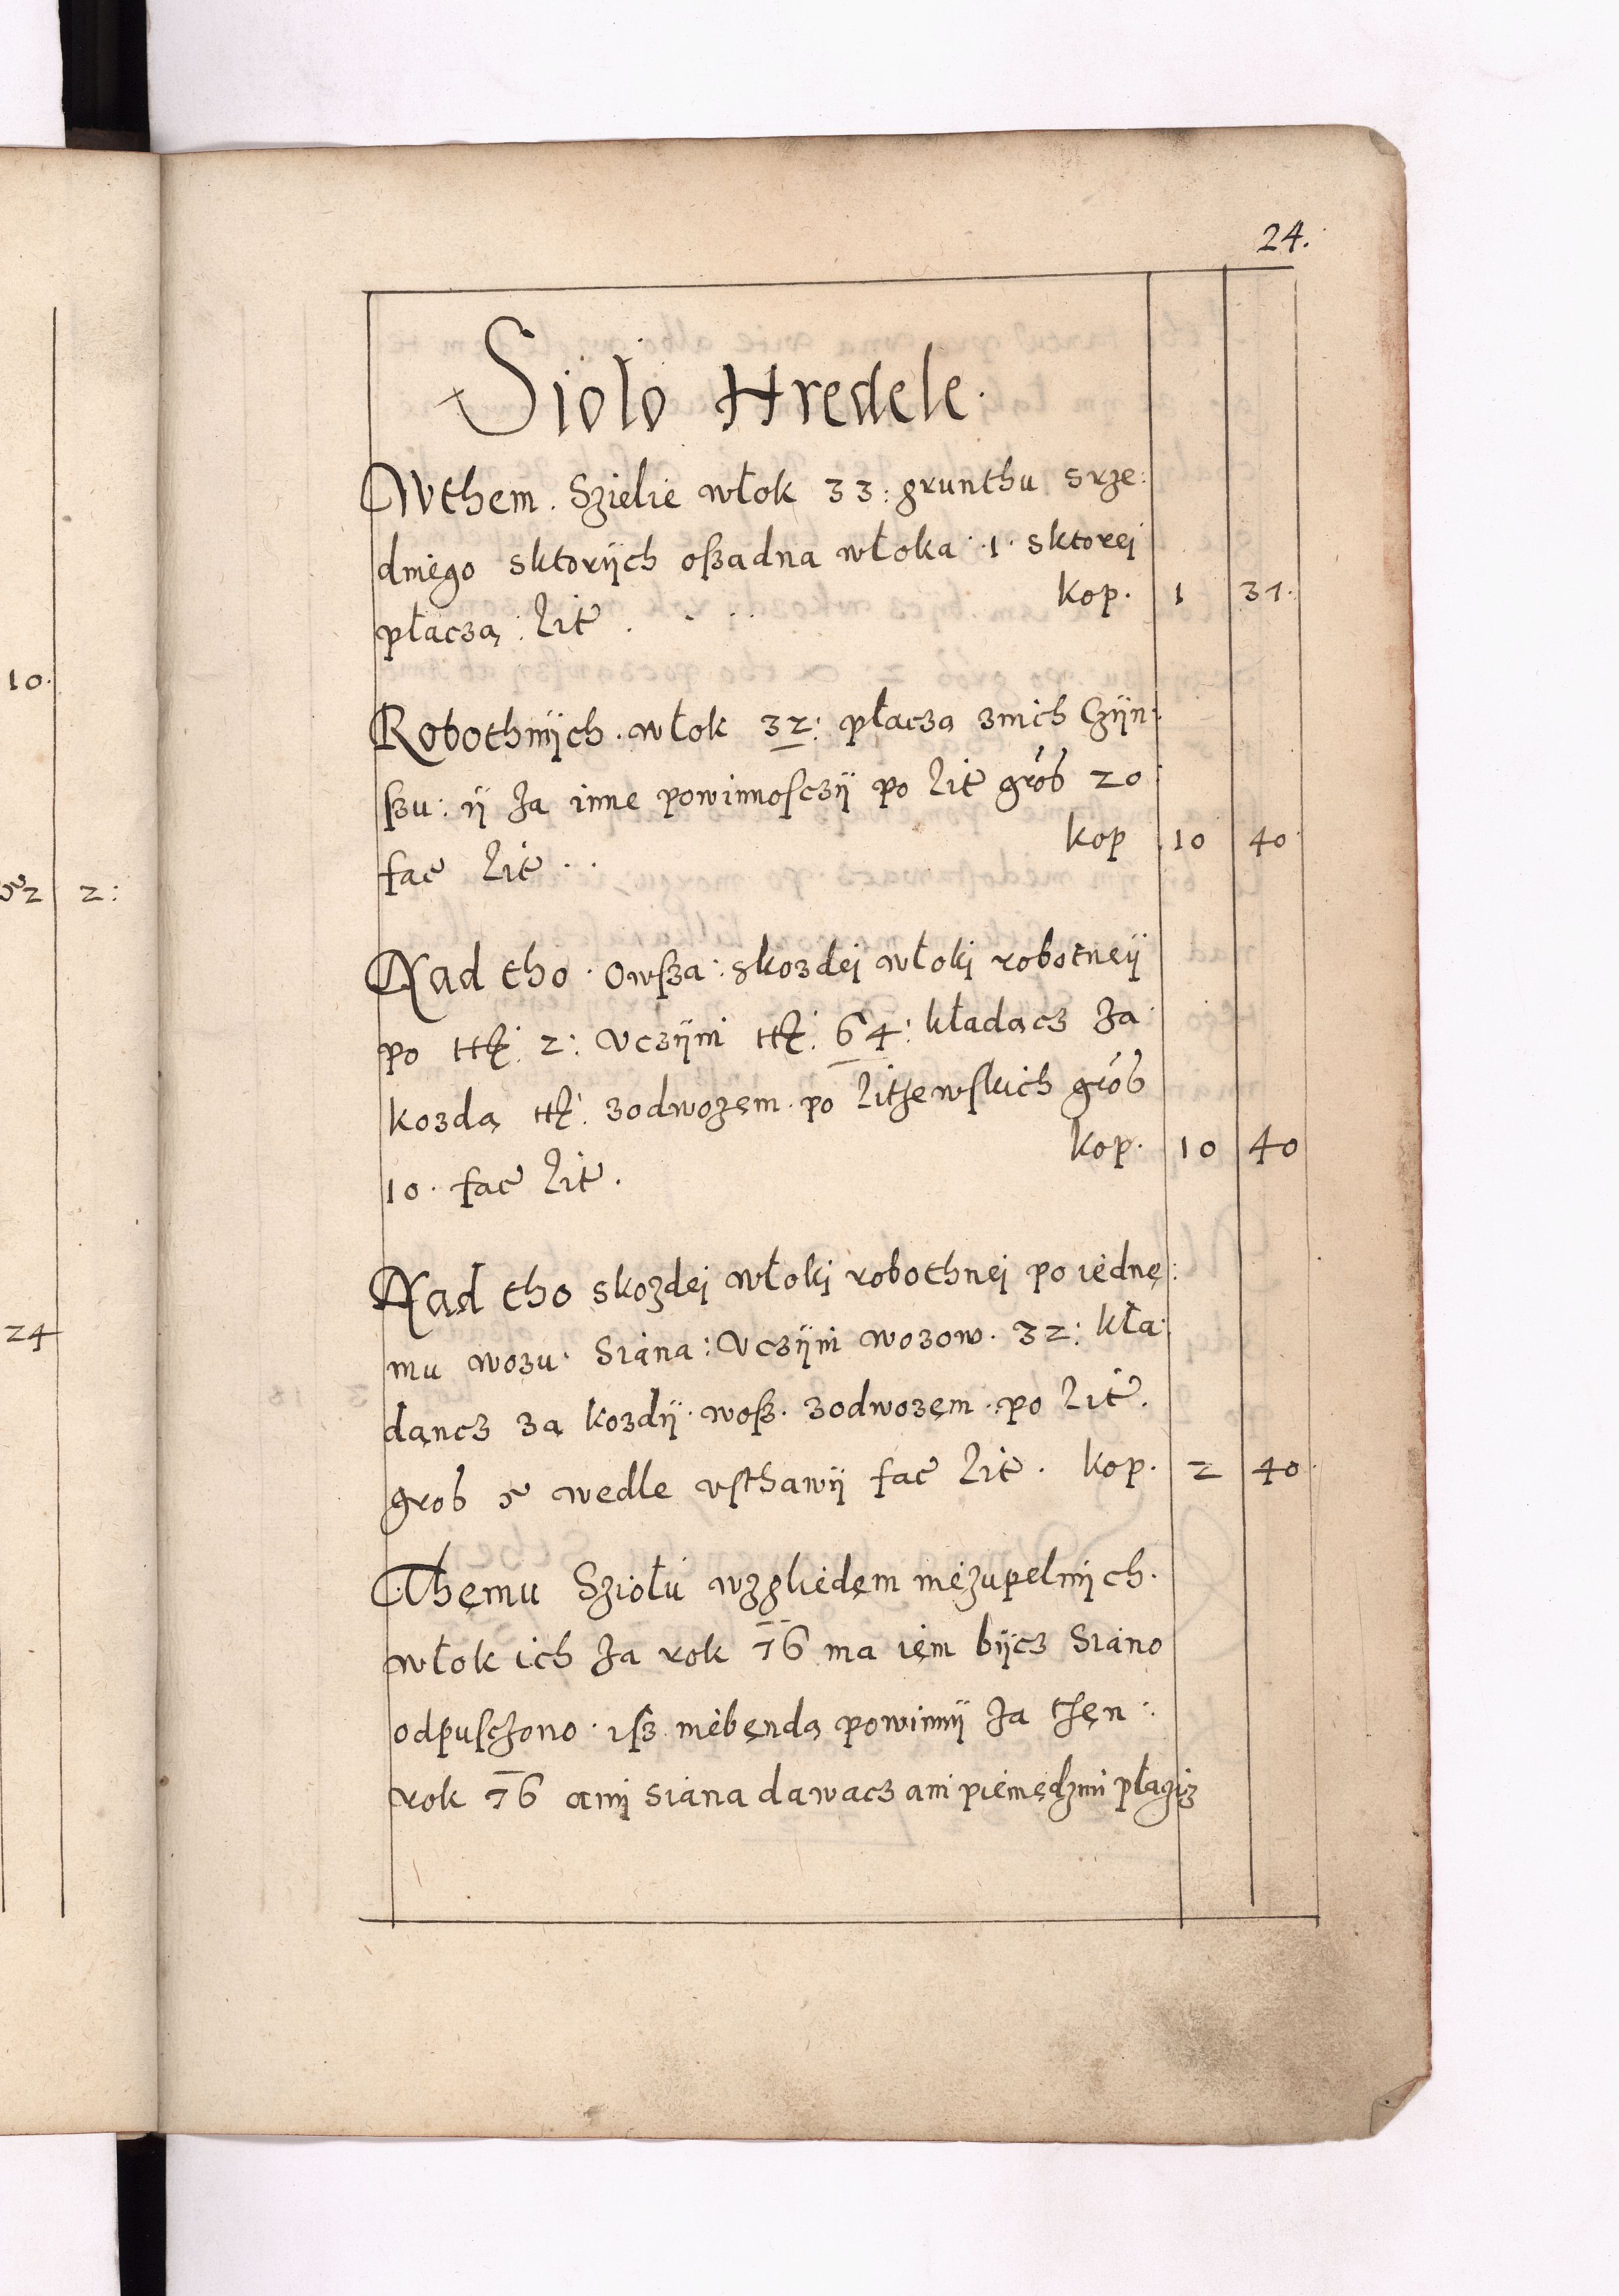 24.
Sioło Hredele.
Wthem. Szielie włok 33: grunthu srze:
dniego sktorÿch oßadna włoka .1. sktorei
płaczą: lit. kop. 1 31.
Robothnÿch. włok 32: płaczą znich Czÿn:
ßzu: ÿ za inne powinnosczÿ po lit grob 20
fac lit.. kop 10 40
10.
Nad tho. Owsza: skozdei włoki robotneÿ
po 2: vczÿni 64: kładacz za
kozdą zodwozem. po litzewskich grob
10. fac lit. kop. 10 40
2 2:
Nad tho skozdei włoki robothnei po iedne:
mu wozu. Siana: vczÿni wozow. 32: kła:
dancz za kozdÿ. woß. zodwozem. po lit.
grob wedle vsthawÿ fac lit. kop. 2 40.
24
Themu Szıołu wzgliedem niezupelnich.
włok ich za rok 76 ma iem bÿcz Siano
odpusczono. isz niebendą powinnÿ za tzen:
rok 76 ani siana dawacz ani pieniedzmi płaziz